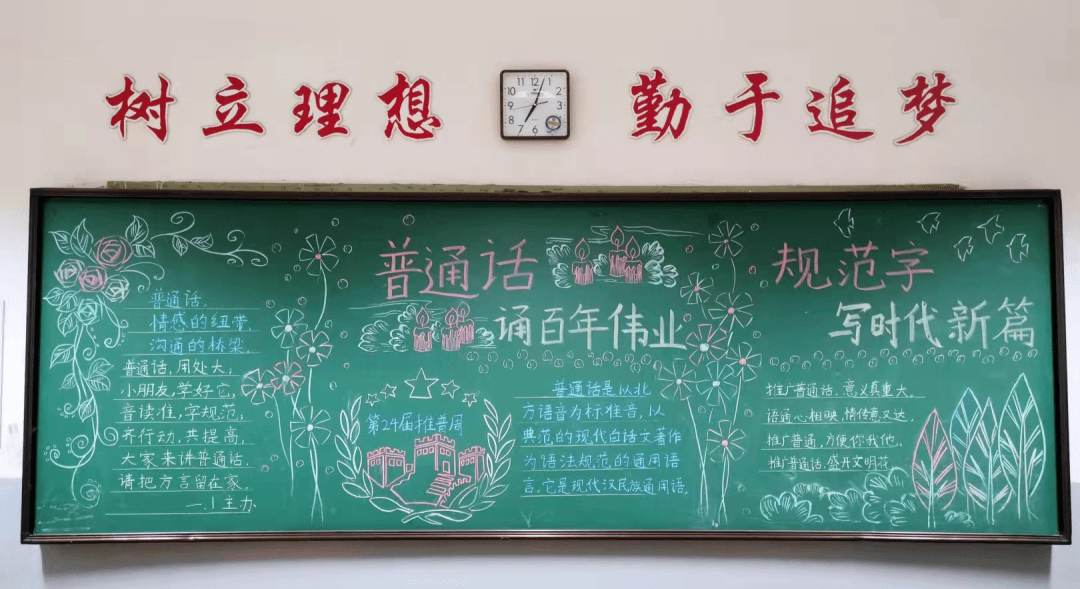 树立理想 勤于追梦
12
1
2
3
4
5
6
7
8
9
10
11
普通话 规范字
诵百年伟业 写时代新篇
普通话,
情感的纽带,
沟通的桥梁。
普通话,用处大,
小朋友,学好它,
音读准,字规范,
齐行动,共提高,
大家来讲普通话,
请把方言留在家。
一.1主办
第24届推普周
普通话是以北
方语音为标准音,以
典范的现代白话文著作
为语法规范的通用语
言。它是现代汉民族通用语。
推广普通话,意义真重大。
语通心相映,情传意又达。
推广普通,方便你我他。
推广普通话,盛开文明花。